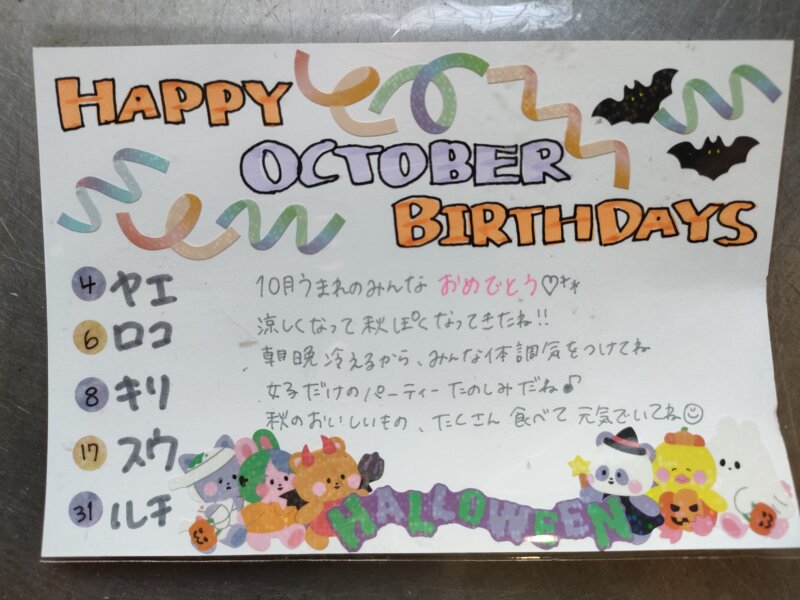 HAPPY
OCTOBER
BIRTHDAYS
4 ヤエ
6 ロコ
8 キリ
17 スウ
31 ルチ
10月うまれのみんな おめでとう♡
涼しくなって秋ぽくなってきたね!!
朝晩冷えるから、みんな体調気をつけてね
女子だけのパーティーたのしみだね♪
秋のおいしいもの、たくさん食べて元気でいてね☺
HALLOWEEN